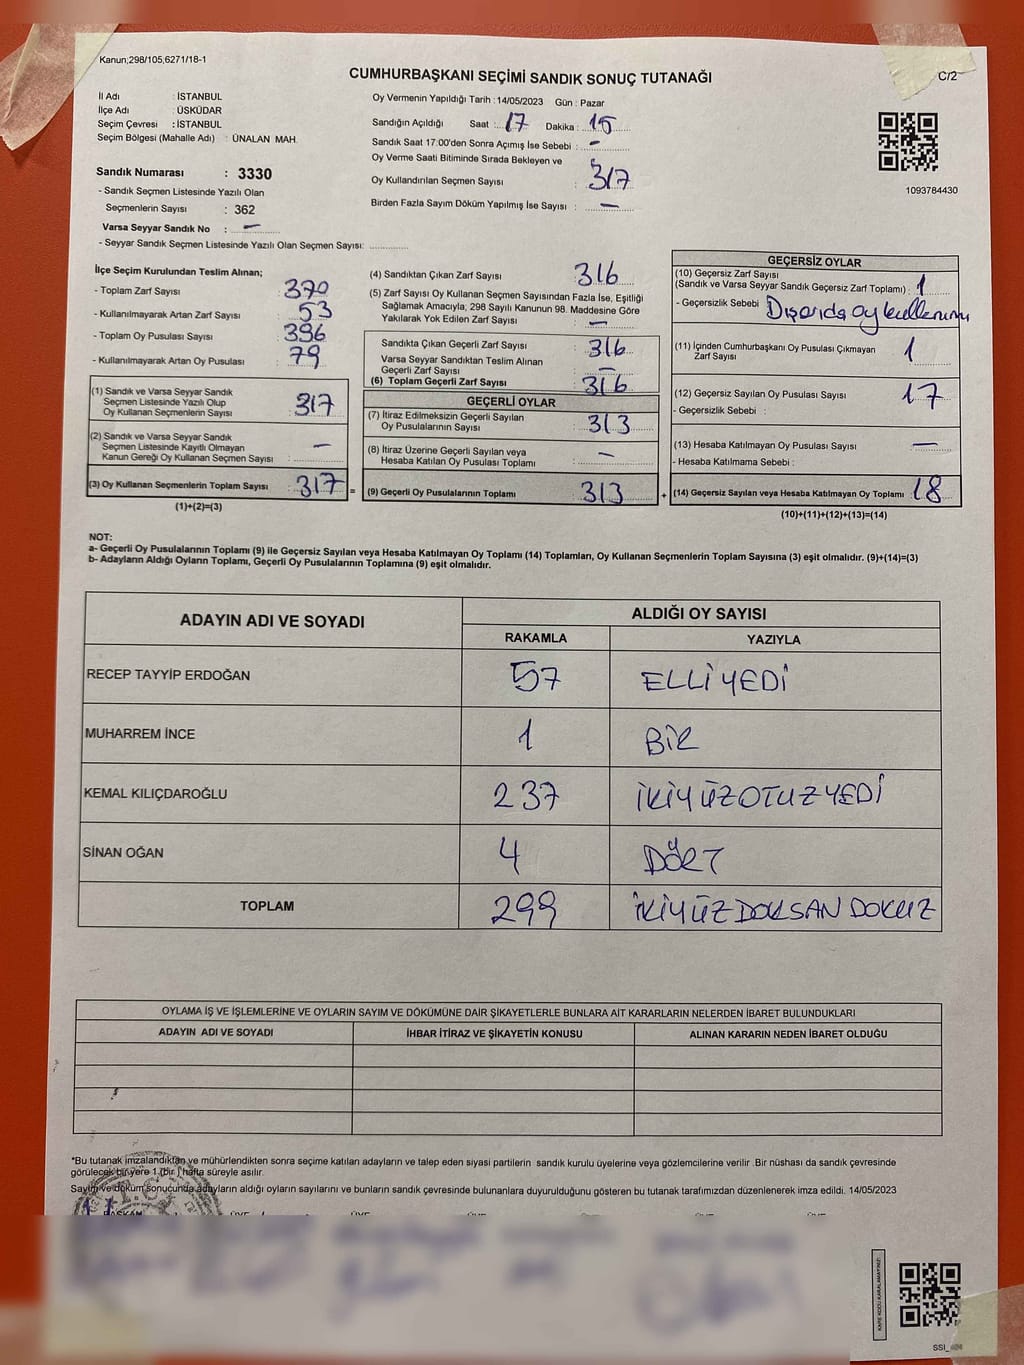 Kanun;298/105,6271/18-1
CUMHURBAŞKANI SEÇİMİ SANDIK SONUÇ TUTANAĞI
C/2
İl Adı : İSTANBUL
İlçe Adı : ÜSKÜDAR
Seçim Çevresi : İSTANBUL
Seçim Bölgesi (Mahalle Adı) : ÜNALAN MAH.
Sandık Numarası : 3330
- Sandık Seçmen Listesinde Yazılı Olan
Seçmenlerin Sayısı : 362
Varsa Seyyar Sandık No : —
- Seyyar Sandık Seçmen Listesinde Yazılı Olan Seçmen Sayısı: ............
Oy Vermenin Yapıldığı Tarih : 14/05/2023 Gün : Pazar
Sandığın Açıldığı Saat : 17 Dakika : 15
Sandık Saat 17:00'den Sonra Açımış İse Sebebi : —
Oy Verme Saati Bitiminde Sırada Bekleyen ve
Oy Kullandırılan Seçmen Sayısı : 317
Birden Fazla Sayım Döküm Yapılmış İse Sayısı : —
1093784430
İlçe Seçim Kurulundan Teslim Alınan;
- Toplam Zarf Sayısı : 370
- Kullanılmayarak Artan Zarf Sayısı : 53
- Toplam Oy Pusulası Sayısı : 396
- Kullanılmayarak Artan Oy Pusulası : 79
(1) Sandık ve Varsa Seyyar Sandık
Seçmen Listesinde Yazılı Olup
Oy Kullanan Seçmenlerin Sayısı : 317
(2) Sandık ve Varsa Seyyar Sandık
Seçmen Listesinde Kayıtlı Olmayan
Kanun Gereği Oy Kullanan Seçmen Sayısı : —
(3) Oy Kullanan Seçmenlerin Toplam Sayısı : 317 =
(1)+(2)=(3)
(4) Sandıktan Çıkan Zarf Sayısı : 316
(5) Zarf Sayısı Oy Kullanan Seçmen Sayısından Fazla İse, Eşitliği
Sağlamak Amacıyla, 298 Sayılı Kanunun 98. Maddesine Göre
Yakılarak Yok Edilen Zarf Sayısı : —
Sandıkta Çıkan Geçerli Zarf Sayısı : 316
Varsa Seyyar Sandıktan Teslim Alınan
Geçerli Zarf Sayısı : —
(6) Toplam Geçerli Zarf Sayısı : 316
GEÇERLİ OYLAR
(7) İtiraz Edilmeksizin Geçerli Sayılan
Oy Pusulalarının Sayısı : 313
(8) İtiraz Üzerine Geçerli Sayılan veya
Hesaba Katılan Oy Pusulası Toplamı : —
(9) Geçerli Oy Pusulalarının Toplamı : 313 +
GEÇERSİZ OYLAR
(10) Geçersiz Zarf Sayısı
(Sandık ve Varsa Seyyar Sandık Geçersiz Zarf Toplamı) : 1
- Geçersizlik Sebebi : Dışarıda oy kullanımı
(11) İçinden Cumhurbaşkanı Oy Pusulası Çıkmayan
Zarf Sayısı 1
(12) Geçersiz Sayılan Oy Pusulası Sayısı : 17
- Geçersizlik Sebebi :
(13) Hesaba Katılmayan Oy Pusulası Sayısı : —
- Hesaba Katılmama Sebebi :
(14) Geçersiz Sayılan veya Hesaba Katılmayan Oy Toplamı : 18
(10)+(11)+(12)+(13)=(14)
NOT:
a- Geçerli Oy Pusulalarının Toplamı (9) ile Geçersiz Sayılan veya Hesaba Katılmayan Oy Toplamı (14) Toplamları, Oy Kullanan Seçmenlerin Toplam Sayısına (3) eşit olmalıdır. (9)+(14)=(3)
b- Adayların Aldığı Oyların Toplamı, Geçerli Oy Pusulalarının Toplamına (9) eşit olmalıdır.
ADAYIN ADI VE SOYADI ALDIĞI OY SAYISI
RAKAMLA YAZIYLA
RECEP TAYYİP ERDOĞAN 57 ELLİYEDİ
MUHARREM İNCE 1 BİR
KEMAL KILIÇDAROĞLU 237 İKİYÜZOTUZYEDİ
SİNAN OĞAN 4 DÖRT
TOPLAM 299 İKİYÜZDOKSAN DOKUZ
OYLAMA İŞ VE İŞLEMLERİNE VE OYLARIN SAYIM VE DÖKÜMÜNE DAİR ŞİKAYETLERLE BUNLARA AİT KARARLARIN NELERDEN İBARET BULUNDUKLARI
ADAYIN ADI VE SOYADI İHBAR İTİRAZ VE ŞİKAYETİN KONUSU ALINAN KARARIN NEDEN İBARET OLDUĞU
*Bu tutanak imzalandıktan ve mühürlendikten sonra seçime katılan adayların ve talep eden siyasi partilerin sandık kurulu üyelerine veya gözlemcilerine verilir .Bir nüshası da sandık çevresinde
görülecek bir yere 1 (bir ) hafta süreyle asılır.
Sayım ve döküm sonucunda adayların aldığı oyların sayılarını ve bunların sandık çevresinde bulunanlara duyurulduğunu gösteren bu tutanak tarafımızdan düzenlenerek imza edildi. 14/05/2023
T.C.
BAŞKAN ÜYE ÜYE ÜYE ÜYE
KARE KODU KARALAMAYINIZ!